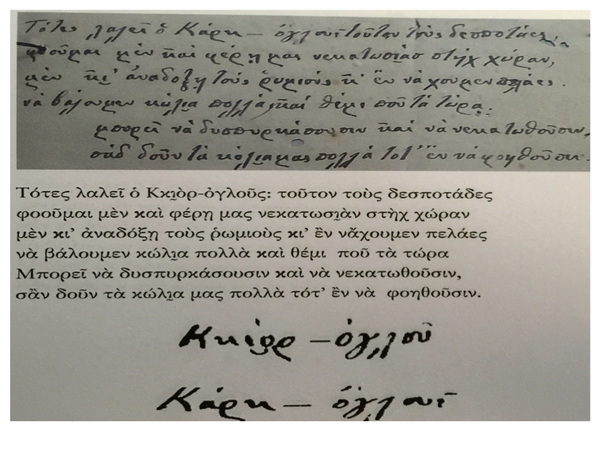 Τότες λαλεῖ ὁ Κάρη — ὀγλουῒ τοῦτον τοὺς δεσποτάες
φοοῦμαι μὲν καὶ φέρῃ μας νεκατωσιὰσ στὴχ χώραν,
μὲν κι' ἀναδόξῃ τοὺς ῥωμιοὺς κ' ἒν νάχουμεν πελάες.
νὰ βάλουμεν κώλια πολλὰ καὶ θέμι ποῦ τὰ τώρα.
μπορεῖ νὰ δυσπυρκάσουσιν καὶ νὰ νεκατωθοῦσιν,
σὰδ δοῦν τὰ κώλια μας πολλὰ τότ' ἒν νὰ φοηθοῦσιν.
Τότες λαλεῖ ὁ Κκι̯ὸρ-ὀγλοῦς: τοῦτον τοὺς δεσποτάδες
φοοῦμαι μὲν καὶ φέρῃ μας νεκατωσι̯ὰν στὴχ χώραν
μὲν κι' ἀναδόξῃ τοὺς ῥωμιοὺς κι' ἒν νἄχουμεν πελάες
νὰ βάλουμεν κώλι̯α πολλὰ καὶ θέμι ποῦ τὰ τώρα
Μπορεῖ νὰ δυσπυρκάσουσιν καὶ νὰ νεκατωθοῦσιν,
σἂν δοῦν τὰ κώλι̯α μας πολλὰ τότ' ἒν νὰ φοηθοῦσιν.
Κκιὸρ — ὀγλοῦ
Κάρη — ὀγλουῒ